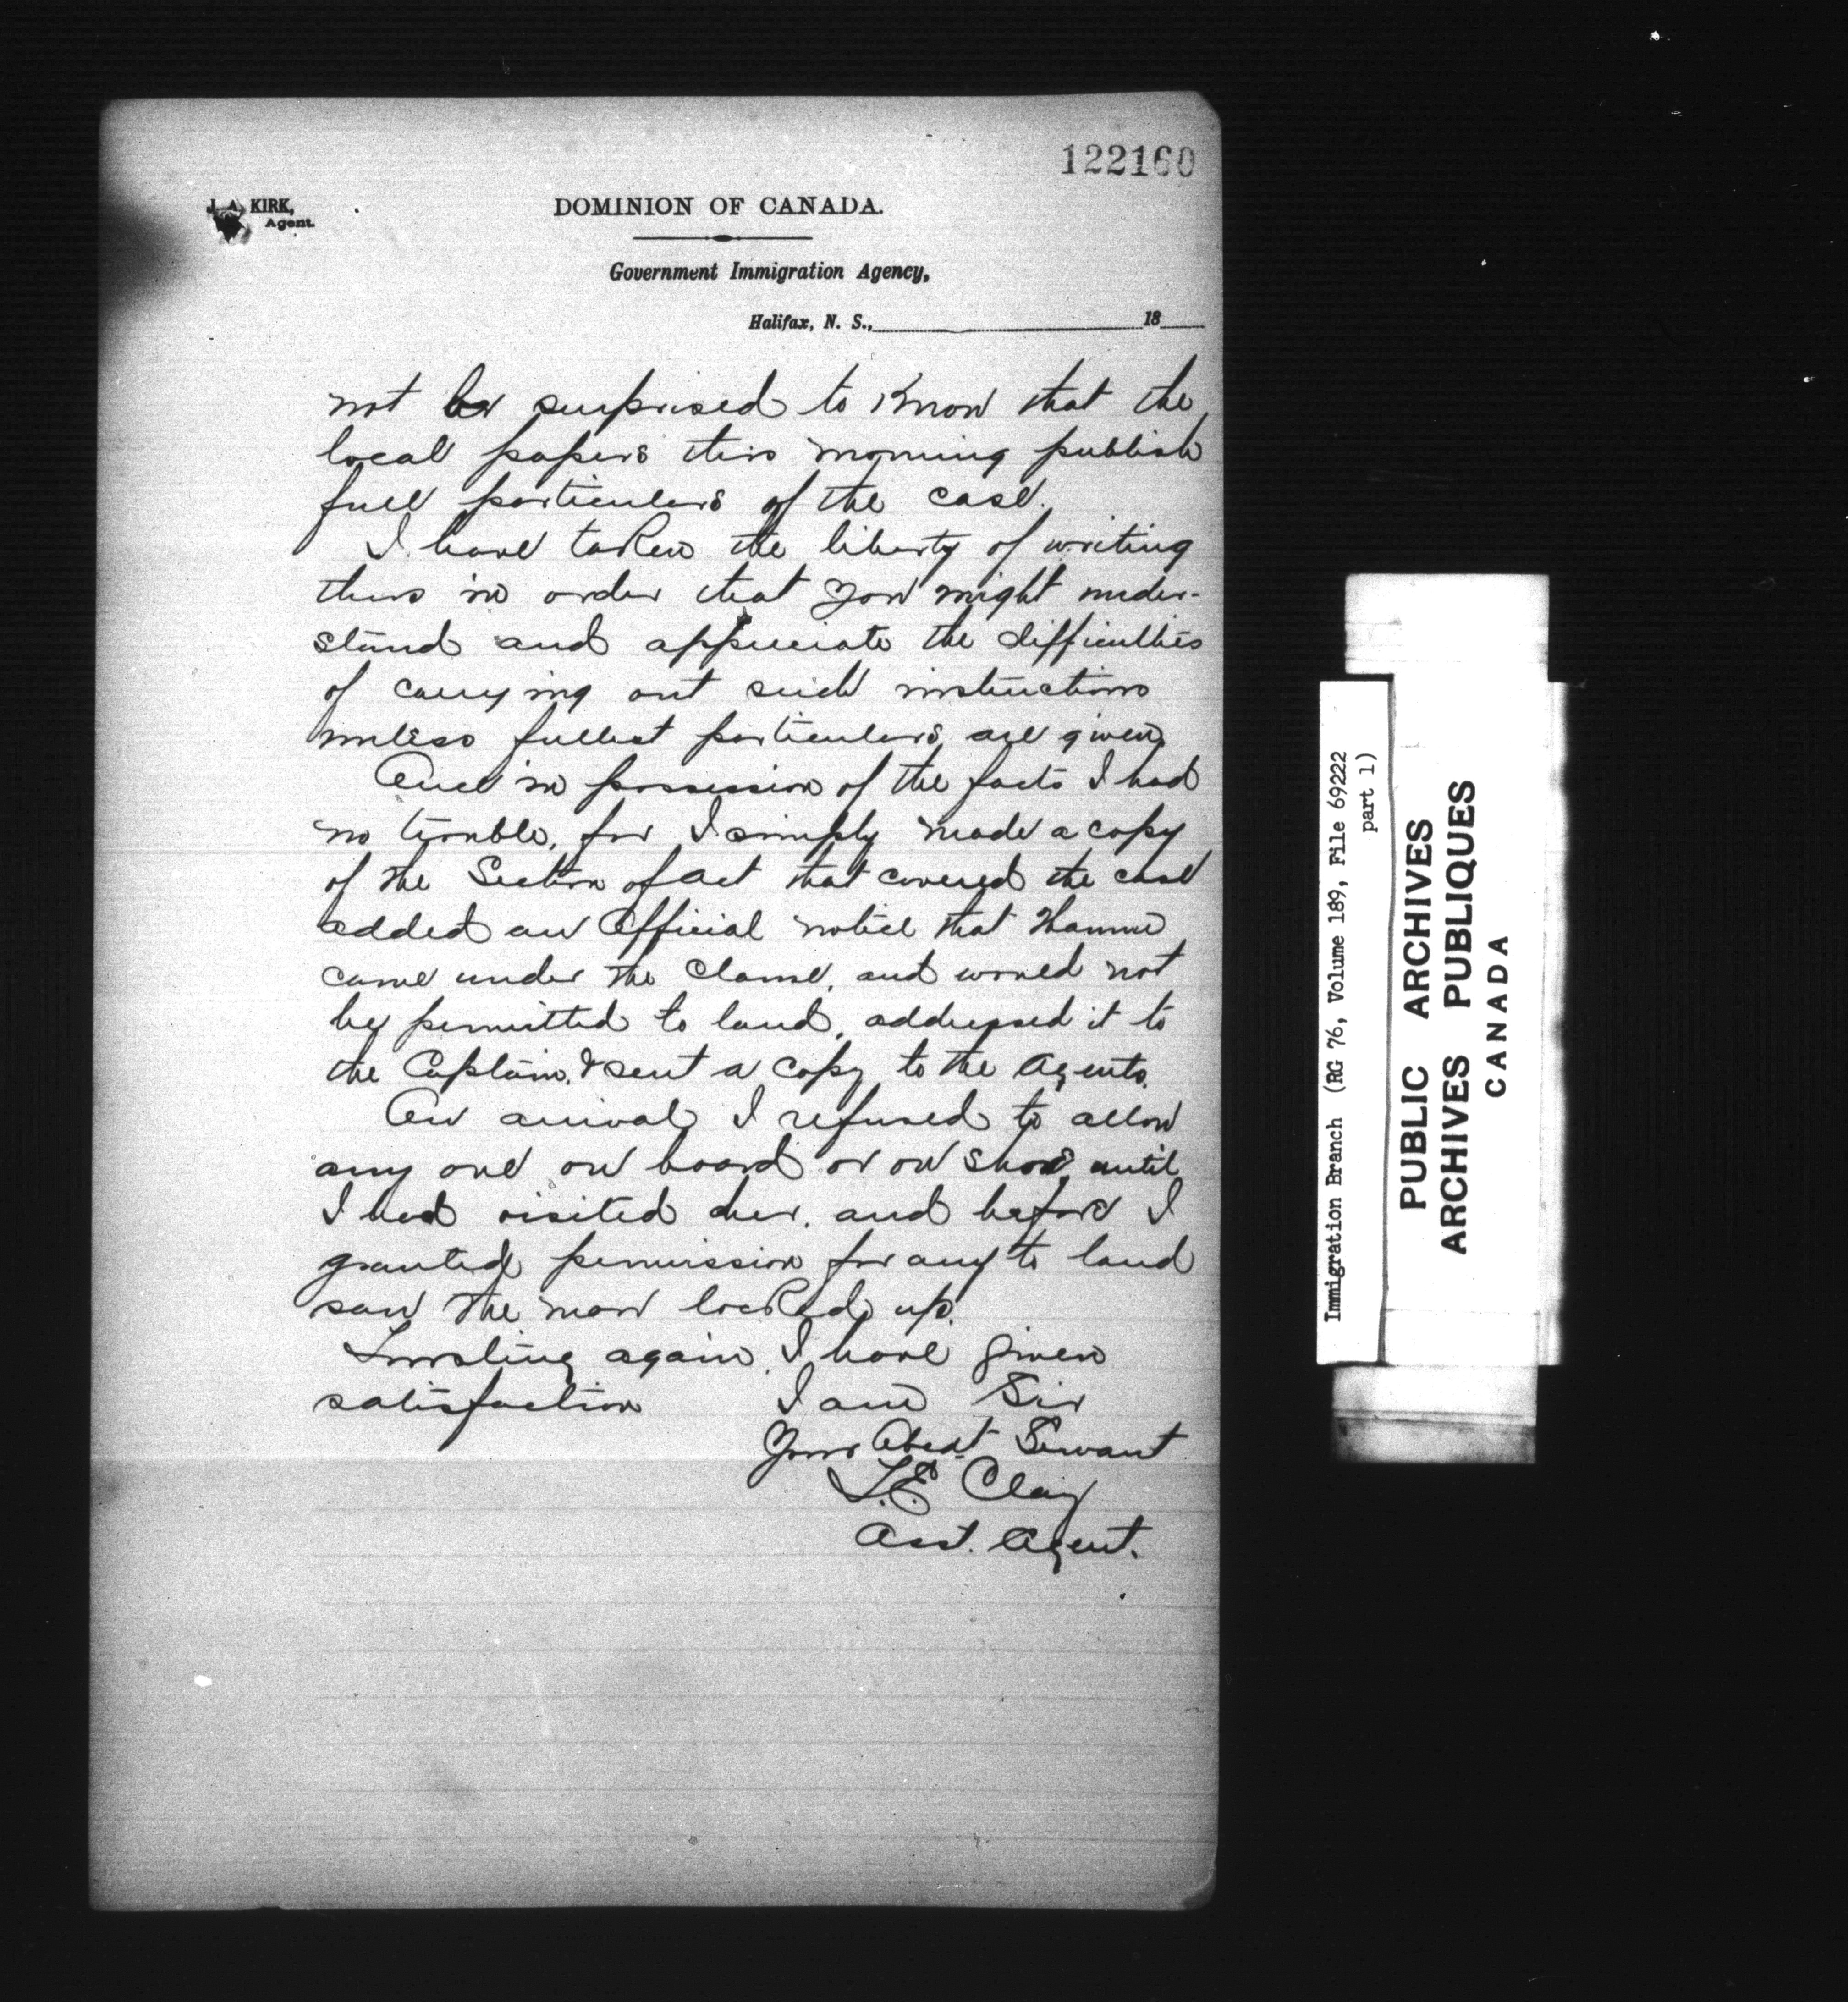 122160
J. A. KIRK,
Agent.
DOMINION OF CANADA.
Government Immigration Agency,
Halifax, N. S., 18
not be surprised to know that the
local papers this morning publish
full particulars of the case.
I have taken the liberty of writing
thus in order that you might under-
stand and appreciate the difficulties
of carrying out such instructions
unless fullest particulars are given
Once in possession of the facts I had
no trouble, for I simply made a copy
of the Section of Act that covered the case
added an Official notice that
came under the Clause, and would not
be permitted to land, addressed it to
the Captain, & sent a copy to the Agents.
On arrival I refused to allow
any one on board or on shore until
I had visited her, and before I
granted permission for any to land
saw the man locked up.
Trusting again I have given
satisfaction I am Sir
Your Obedt Servant
L.E. Clay
Asst. Agent.
Immigration Branch (RG 76, Volume 189, File 69222
part 1)
PUBLIC ARCHIVES
ARCHIVES PUBLIQUES
CANADA